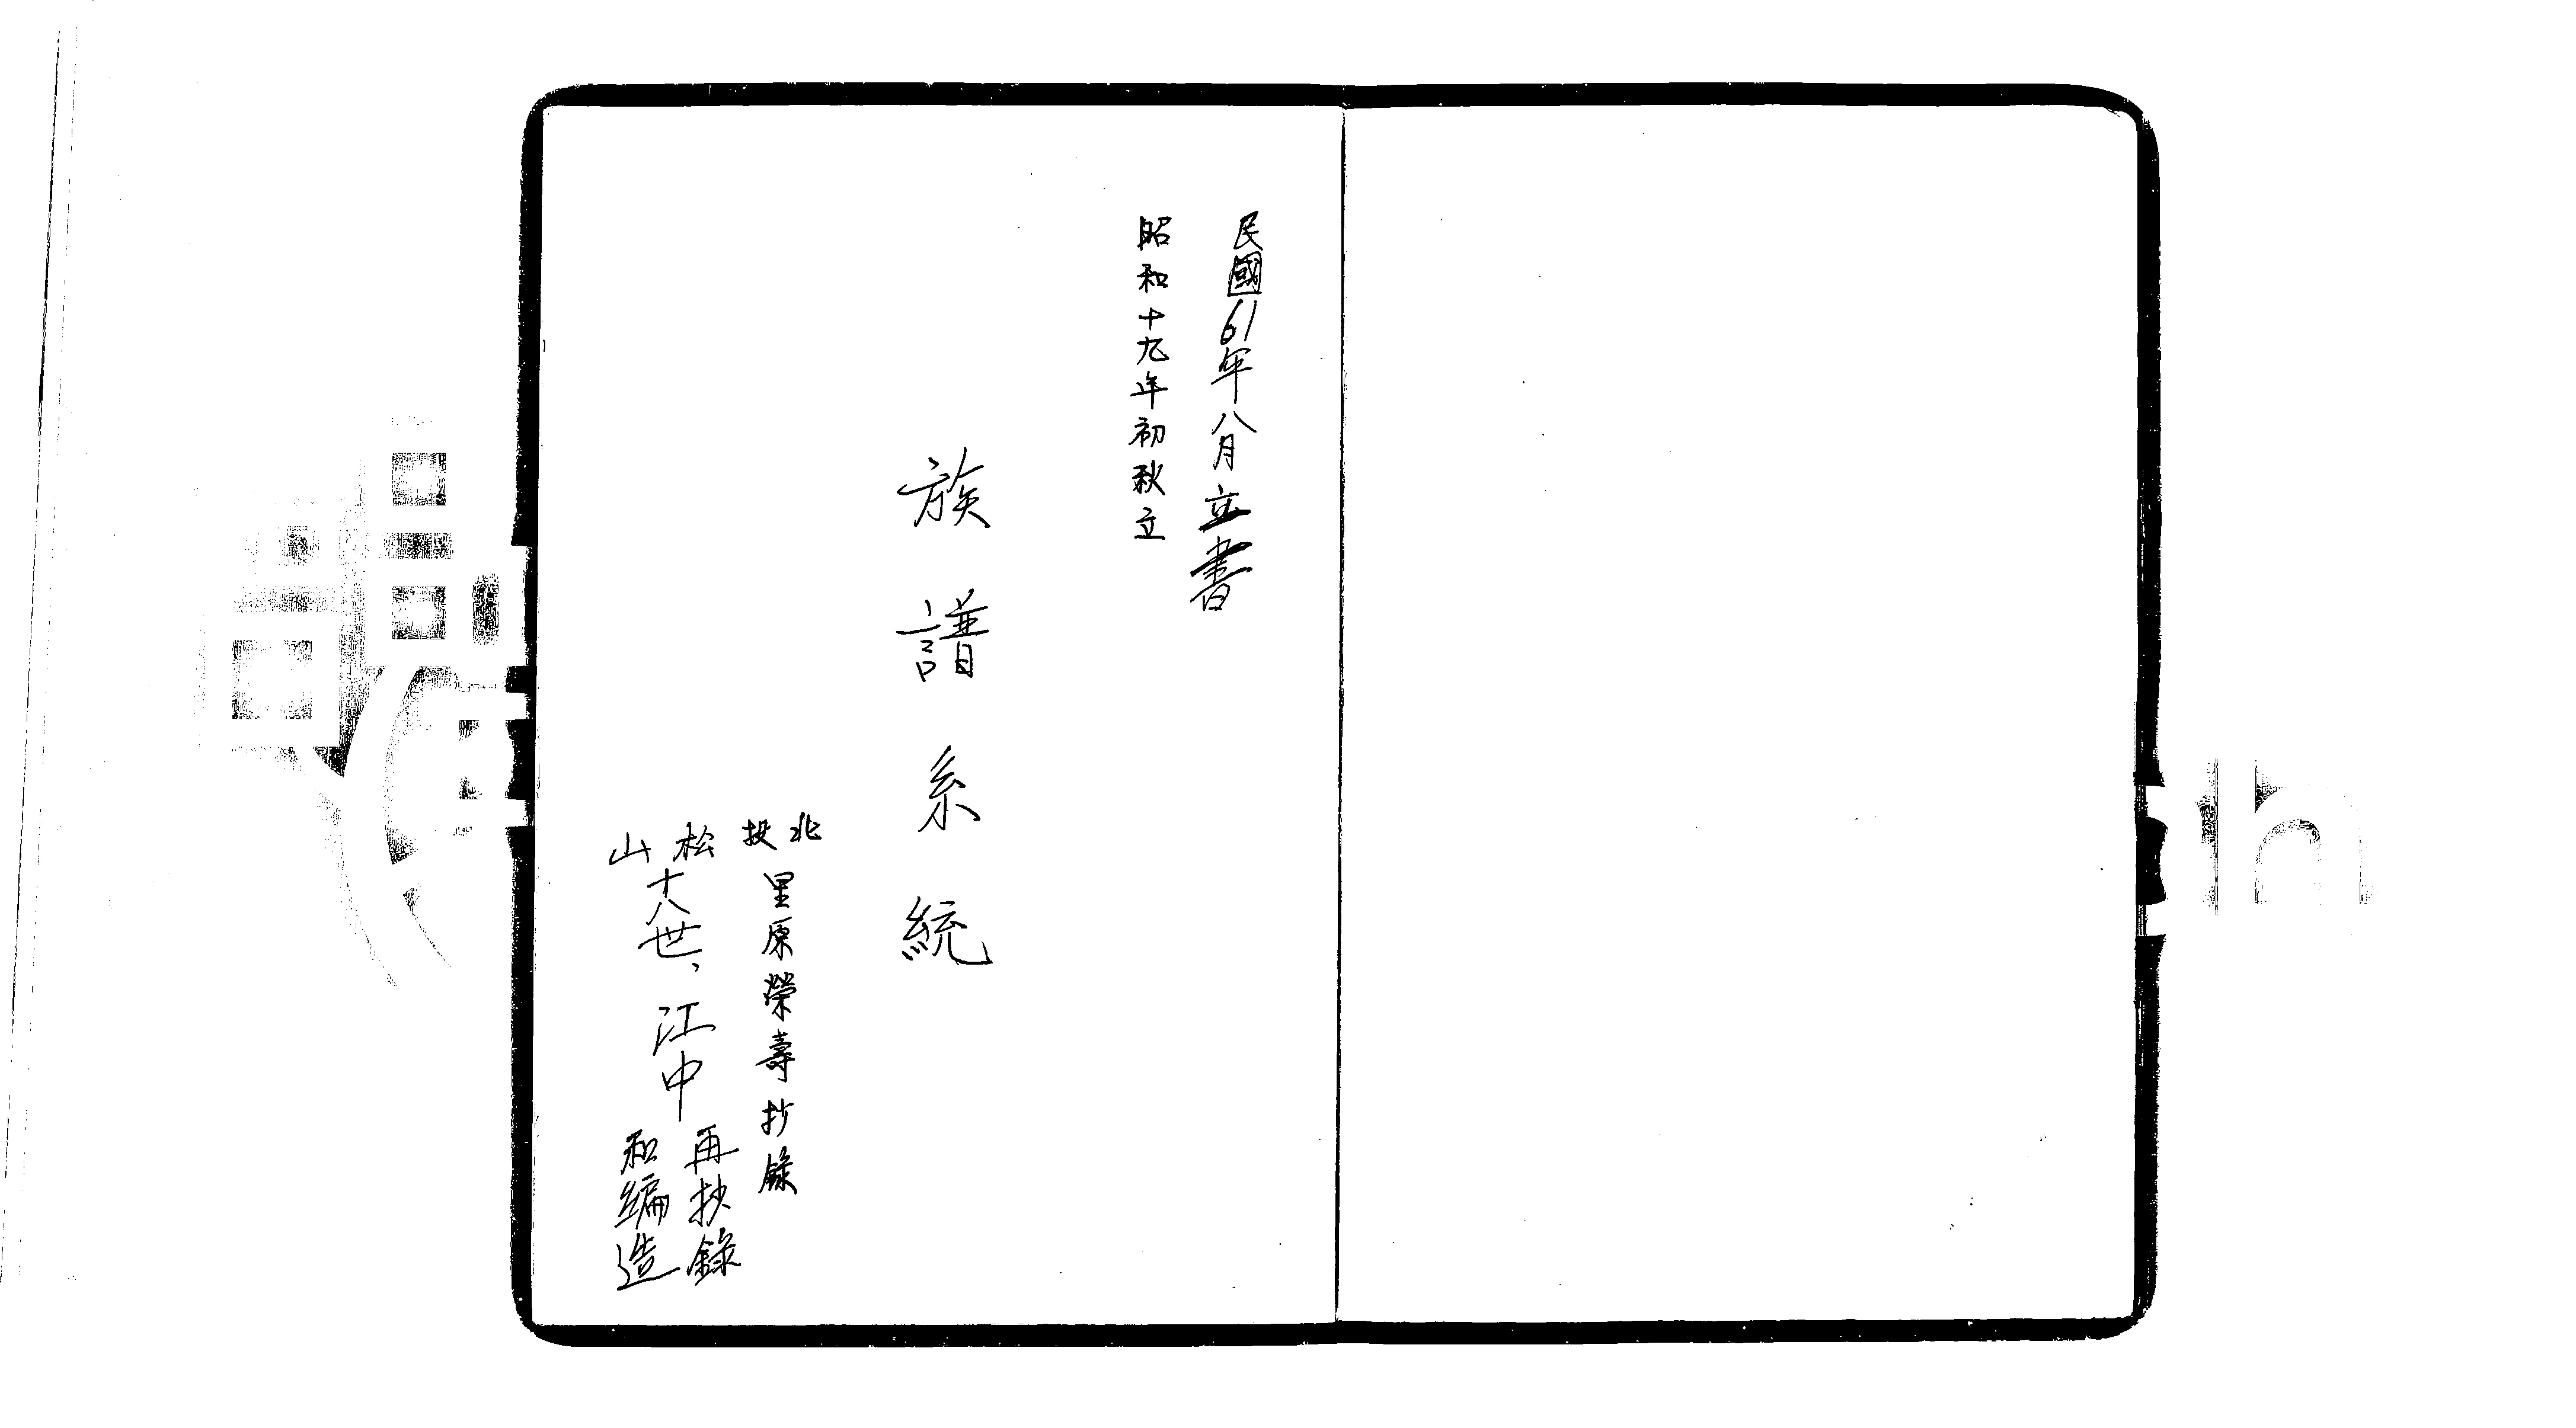 民國61年八月立書
昭和十九年初秋立
族譜系統
北投 里原榮壽抄錄
松山 十八世、江中 再抄錄和編造